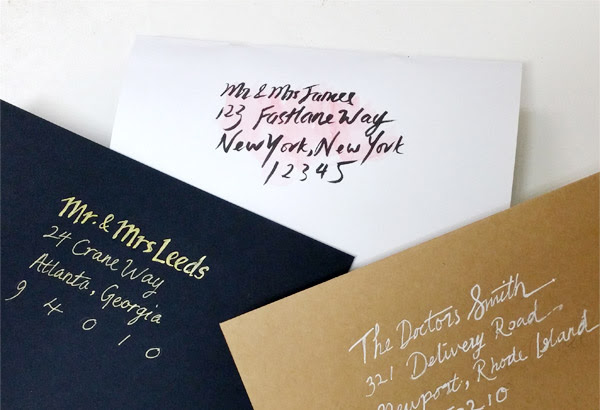 Mr & Mrs James
123 Fastlane Way
New York, New York
12345
Mr. & Mrs Leeds
24 Crane Way
Atlanta, Georgia
94010
The Doctors Smith
321 Delivery Road
Newport, Rhode Island